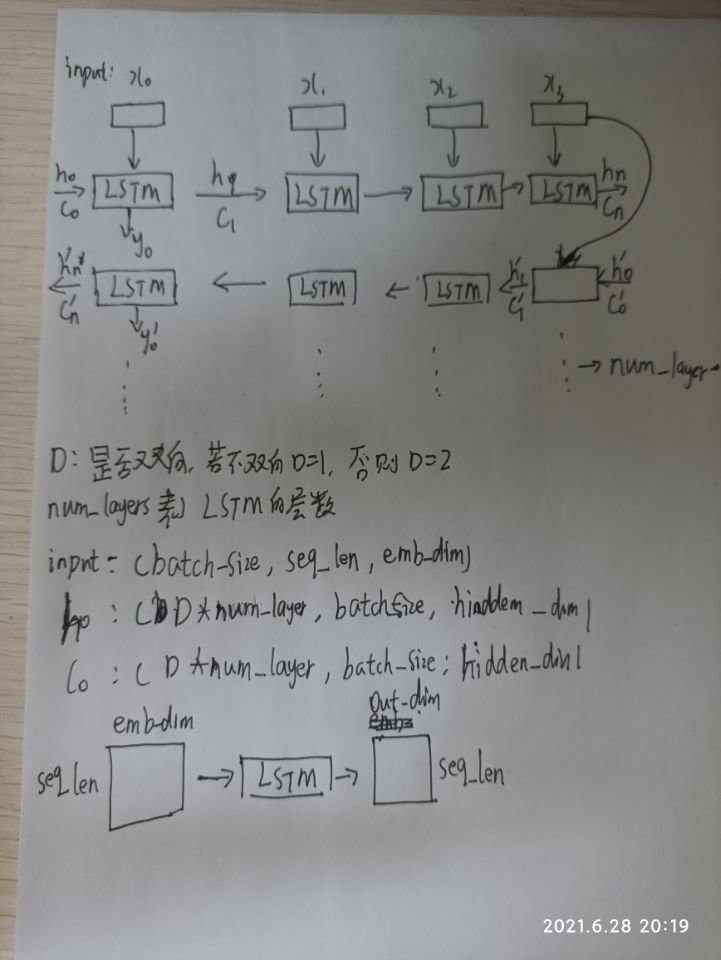 input: x₀ x₁ x₂ x₃
h₀ h₁ hn
LSTM LSTM LSTM LSTM
C₀ C₁ Cn
y₀
hn' h₁' h₀'
LSTM LSTM LSTM
Cn' C₁' C₀'
y₀'
→ num_layer
D: 是否双向, 若不双向 D=1, 否则 D=2
num_layers 表示 LSTM 的层数
input = (batch-size, seq_len, emb-dim)
h₀ : (D*num-layer, batchsize, hinddem_dim)
C₀ : (D*num_layer, batch_size; hidden_dim)
emb-dim out-dim
seq_len LSTM seq_len
2021.6.28 20:19